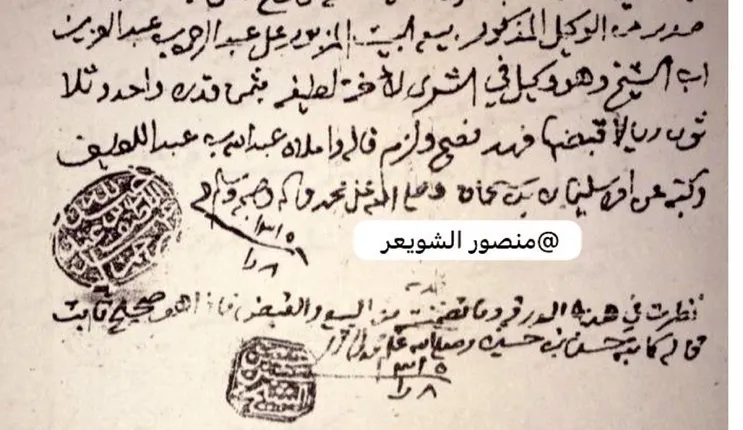 صدر من الوكيل المذكور بيع البيت المزبور على عبد الرحمن بن عبد العزيز
اب الشيخ وهو وكيل في الشرى لأخته لطيفه بثمن قدره واحد وثلا
ثون ريالا قبضها فهد فصح ولزم قاله واملاه عبد الله بن عبد اللطيف
وكتبه عن امره سليمان بن سحمان وصلى الله على محمد واله وصحبه وسلم
١٣١٥
@منصور الشويعر
نظرت في هذه الورقه وما تضمنت من البيع والقبض فاذا هو صحيح ثابت
قاله كاتبه حسن بن حسين وصلى الله على
١٣١٥